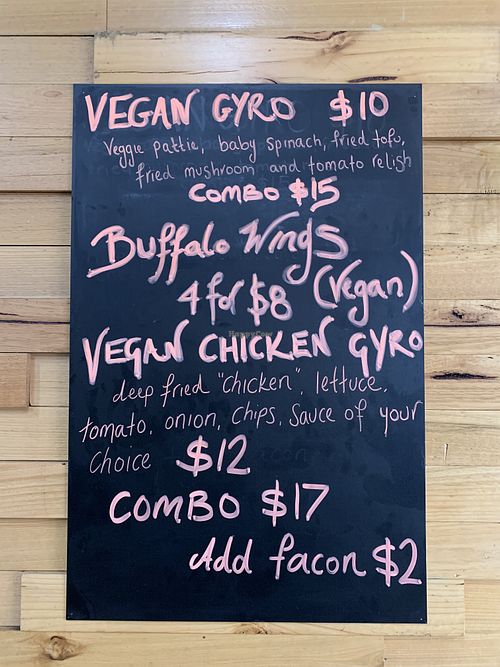 VEGAN GYRO $10
Veggie pattie, baby spinach, fried tofu,
fried mushroom and tomato relish
COMBO $15
Buffalo Wings
4 for $8 (Vegan)
VEGAN CHICKEN GYRO
deep fried "chicken", lettuce,
tomato, onion, chips, sauce of your
choice $12
COMBO $17
Add facon $2